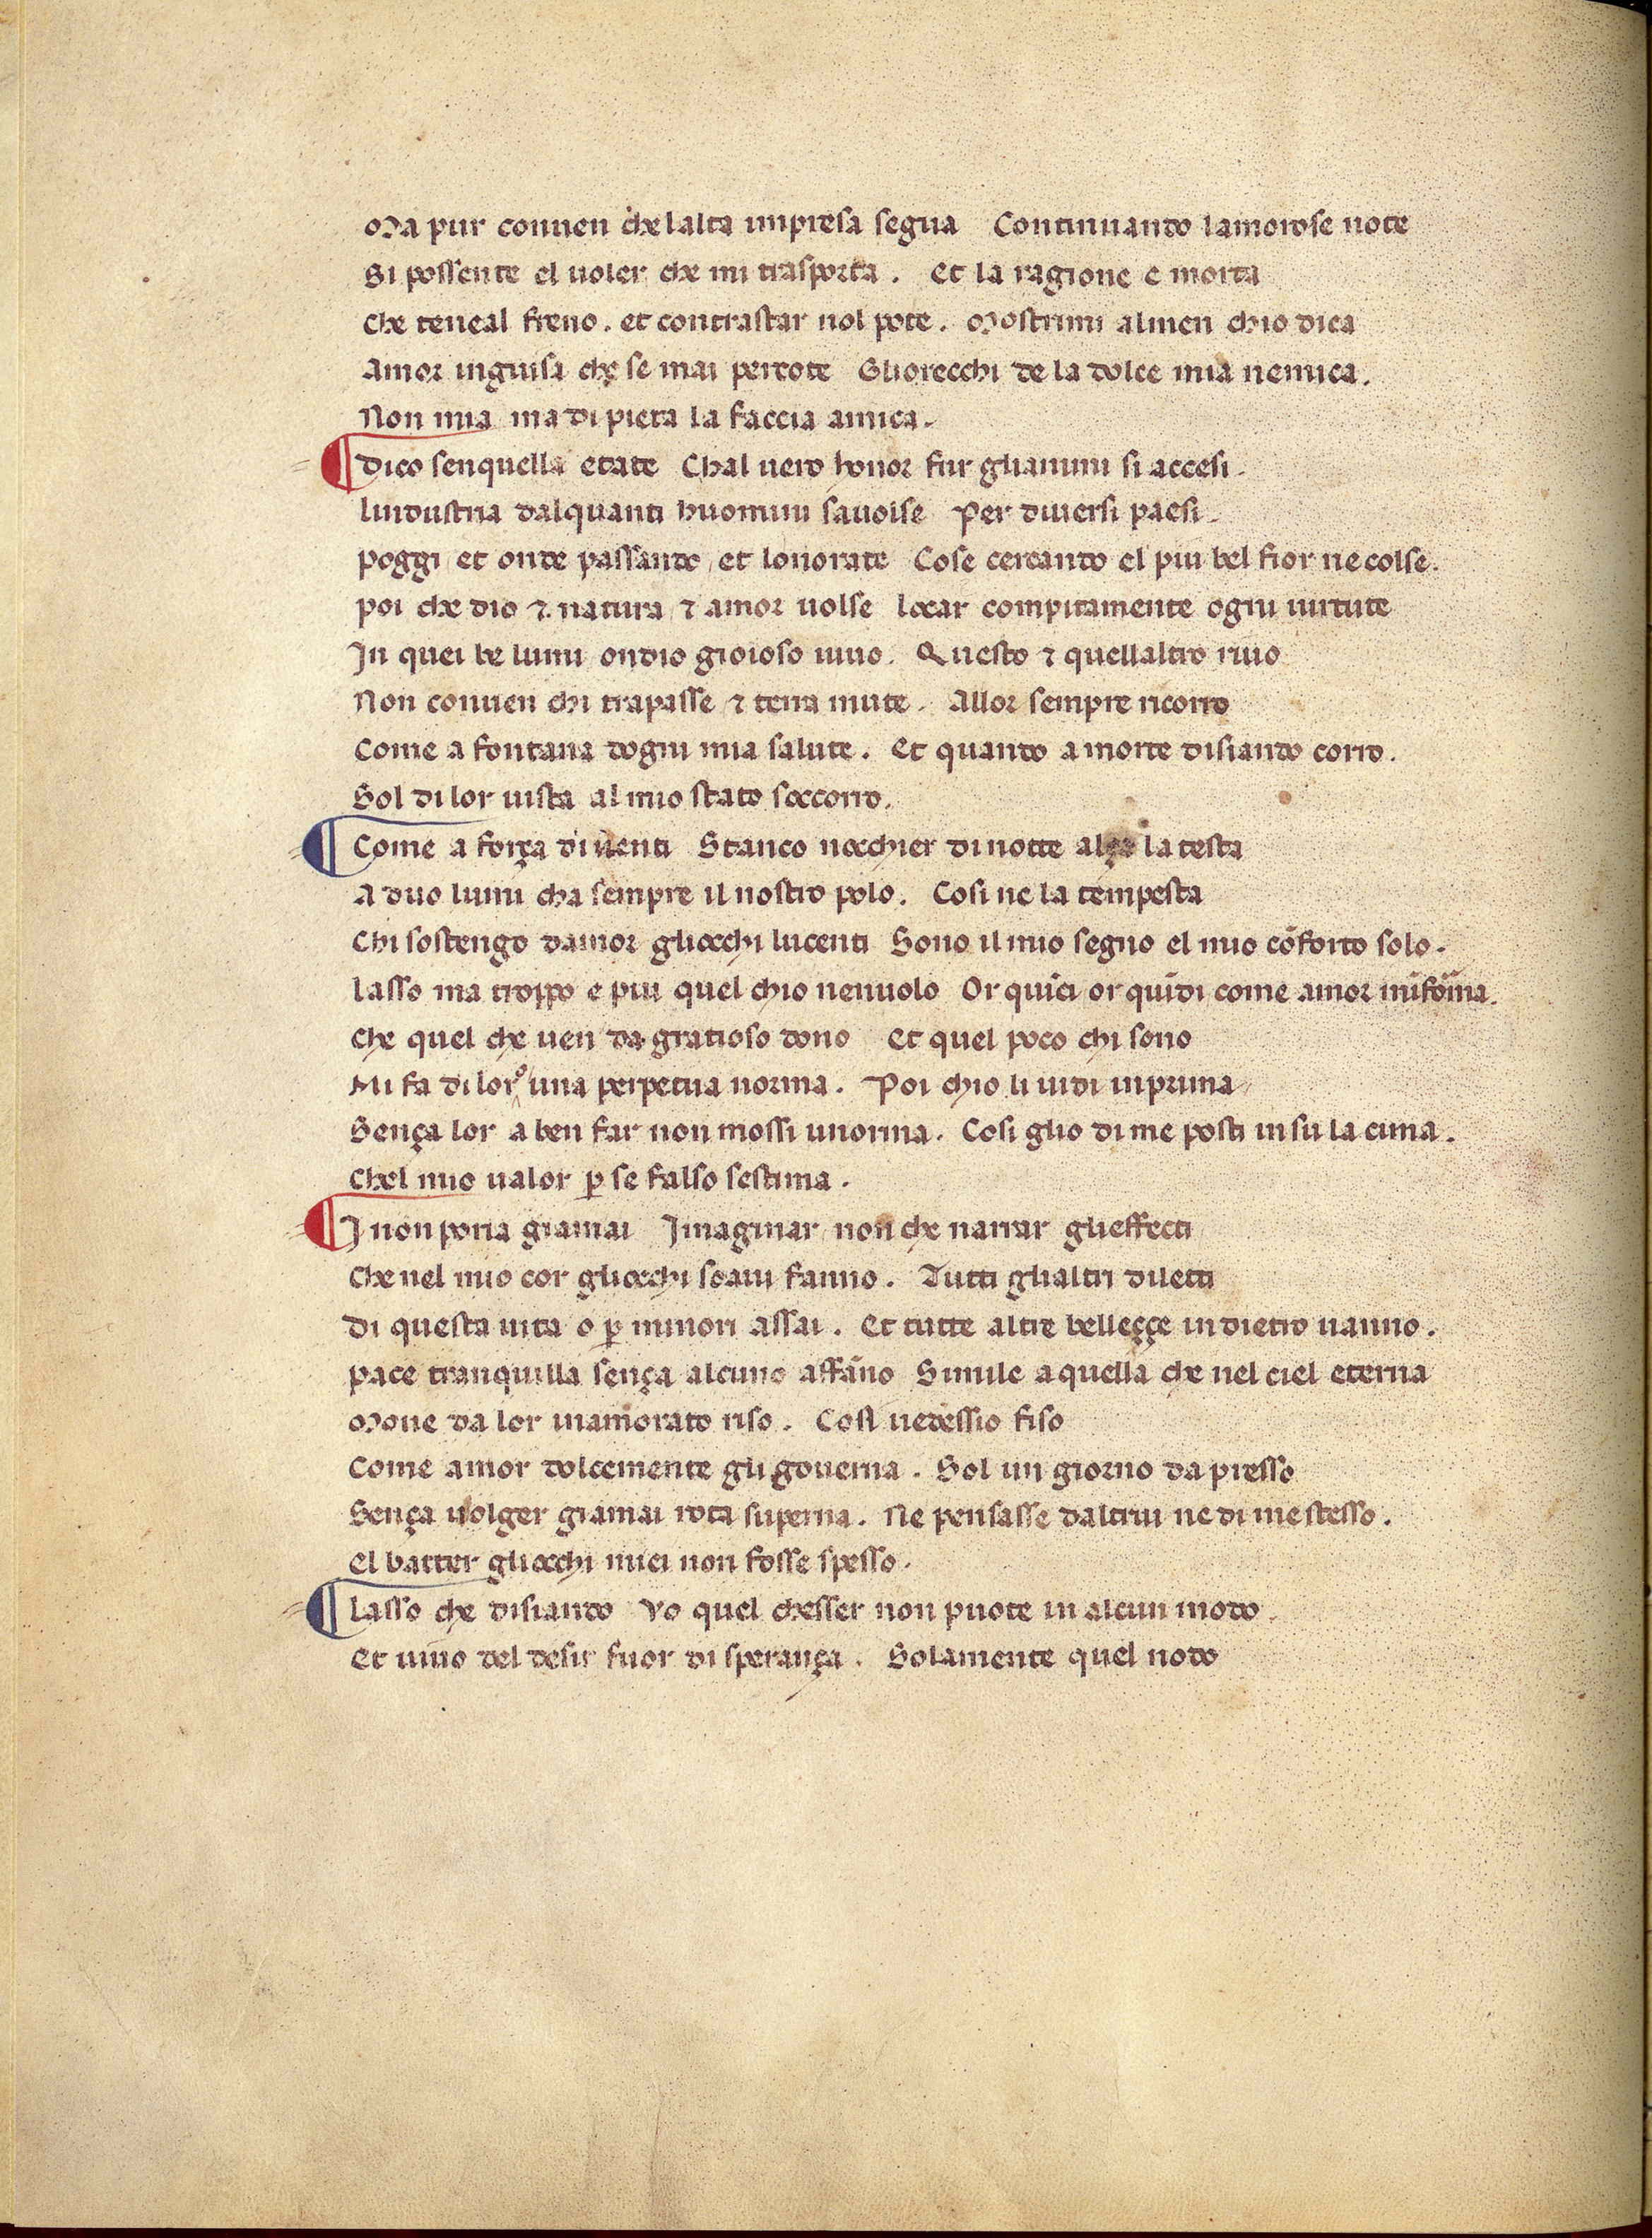 Ma pur conuen che lalta impresa segua Continuando lamorose note
Si possente el uoler che mi trasporta. Et la ragione e morta
Che teneal freno. et contrastar nol pote. Mostrimi almen chio dica
Amor inguisa che se mai percote Gliorecchi de la dolce mia nemica.
Non mia ma di pieta la faccia amica.
¶ Dico senquella etate Chal uero honor fur glianimi si accesi.
Lindustria dalquanti huomini sauolse Per diuersi paesi.
Poggi et onde passando, et lonorate Cose cercando el piu bel fior ne colse.
Poi che dio ⁊ natura ⁊ amor uolse Locar compitamente ogni uirtute
In quei be lumi ondio gioioso uiuo. Questo ⁊ quellaltro riuo
Non conuen chi trapasse ⁊ terra mute. Allor sempre ricorro
Come a fontana dogni mia salute. Et quando a morte disiando corro.
Sol di lor uista al mio stato soccorro.
¶ Come a força di uenti Stanco nocchier di notte alça la testa
A duo lumi cha sempre il nostro polo. Cosi ne la tempesta
Chi sostengo damor gliocchi lucenti Sono il mio segno el mio cōforto solo.
Lasso ma troppo e piu quel chio nenuolo Or quīci or quīdi come amor mīfōrma.
Che quel che uen da gratioso dono Et quel poco chi sono
Mi fa di loro una perpetua norma. Poi chio li uidi inprima
Sença lor a ben far non mossi unorma. Cosi glio di me posti insu la cima.
Chel mio ualor ꝑ se falso sestima.
¶ I non poria giamai Imaginar non che narrar glieffecti
Che nel mio cor gliocchi soaui fanno. Tutti glialtri diletti
Di questa uita o ꝑ minori assai. Et tutte altre belleççe indietro uanno.
Pace tranquilla sença alcuno affāno Simile a quella che nel ciel eterna
Moue da lor inamorato riso. Cosi uedessio fiso
Come amor dolcemente gli gouerna. Sol un giorno da presso
Sença uolger giamai rota superna. Ne pensasse daltrui ne di me stesso.
El batter gliocchi miei non fosse spesso.
¶ Lasso che disiando Vo quel chesser non puote in alcun modo.
Et uiuo del desir fuor di sperança. Solamente quel nodo